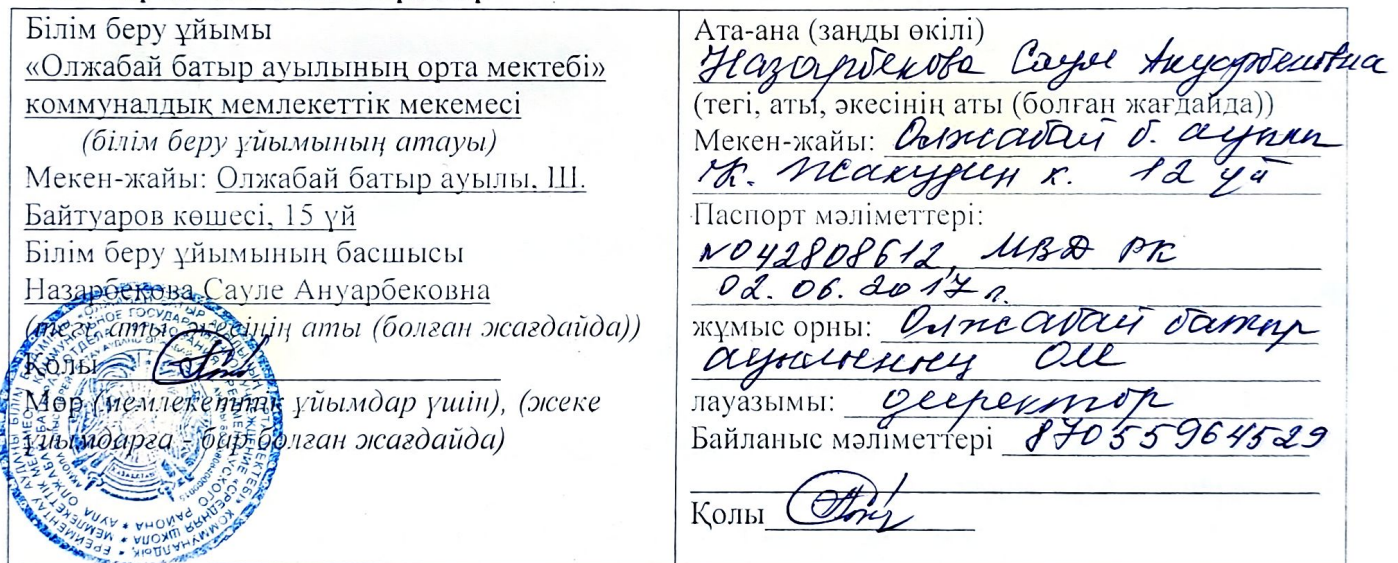 Білім беру ұйымы
«Олжабай батыр ауылының орта мектебі»
коммуналдық мемлекеттік мекемесі
(білім беру ұйымының атауы)
Мекен-жайы: Олжабай батыр ауылы, Ш.
Байтуаров көшесі, 15 үй
Білім беру ұйымының басшысы
Назарбекова Сауле Ануарбековна
(тегі, аты, әкесінің аты (болған жағдайда))
Қолы
Мөр (мемлекеттік ұйымдар үшін), (жеке
ұйымдарға - бар болған жағдайда)
Ата-ана (заңды өкілі)
Назарбекова Сауле Ануарбековна
(тегі, аты, әкесінің аты (болған жағдайда))
Мекен-жайы: Олжабай б. ауылы
К. Жакудин к. 12 үй
Паспорт мәліметтері:
N042808612, МВД РК
02.06.2017 г.
жұмыс орны: Олжабай батыр
ауылының ОМ
лауазымы: директор
Байланыс мәліметтері 87055964529
Қолы